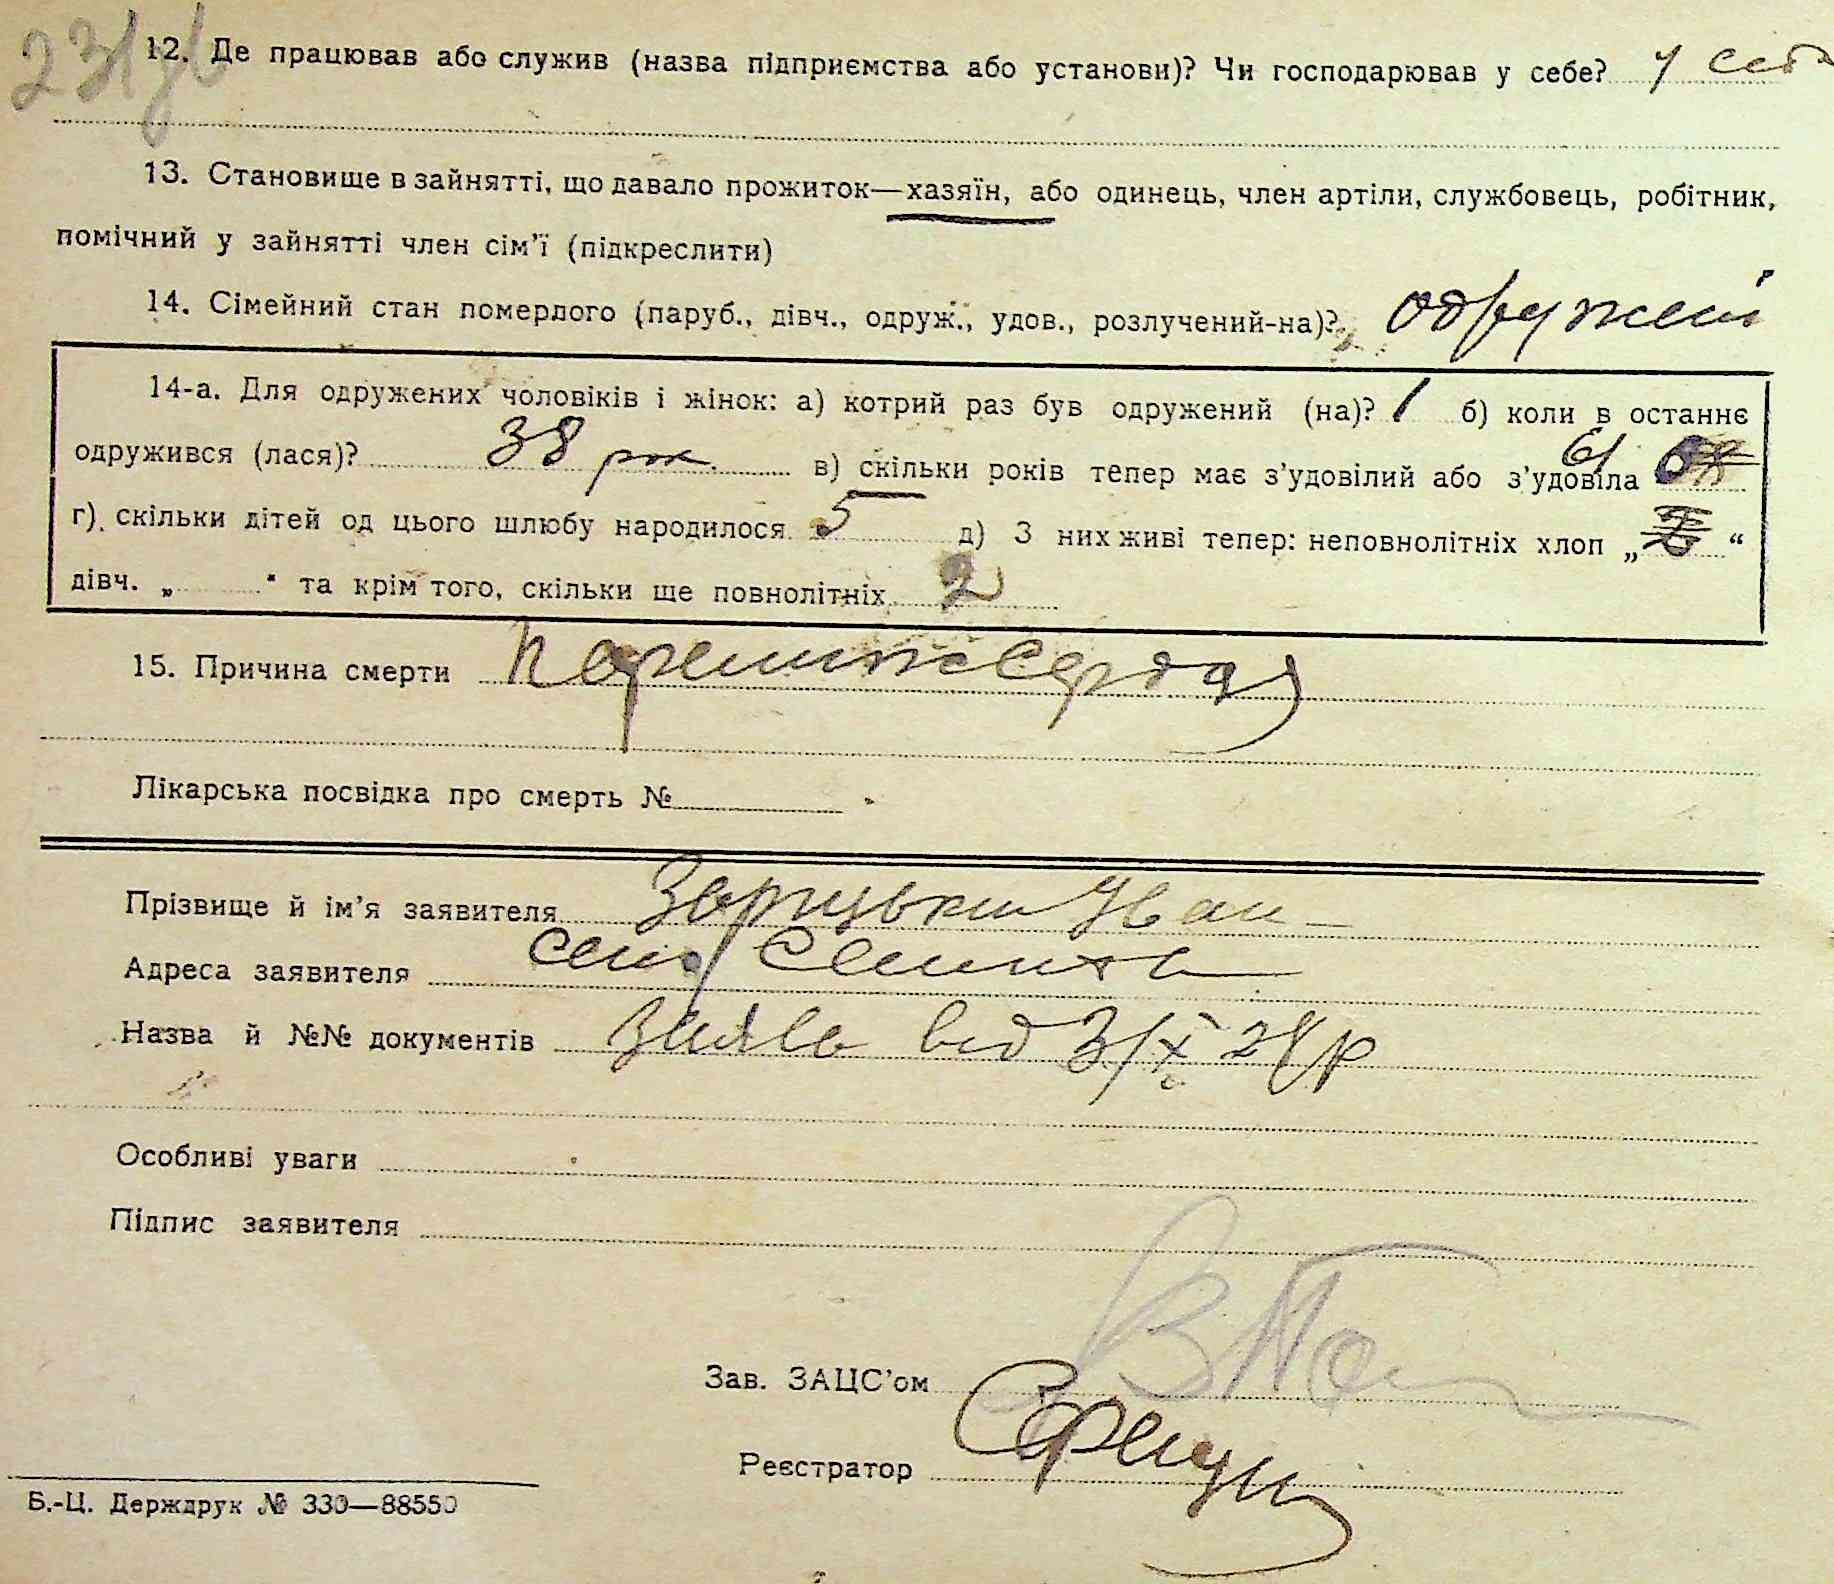 12. Де працював або служив (назва підприємства або установи)? Чи господарював у себе? у себе
13. Становище в зайнятті, що давало прожиток—хазяїн, або одинець, член артіли, службовець, робітник,
помічний у зайнятті член сім'ї (підкреслити)
14. Сімейний стан померлого (паруб., дівч., одруж., удов., розлучений-на)? одружені
14-а. Для одружених чоловіків і жінок: а) котрий раз був одружений (на)? 1 б) коли в останнє
одружився (лася)? 38 рок. в) скільки років тепер має з'удовілий або з'удовіла 61
г) скільки дітей од цього шлюбу народилося 5 д) З них живі тепер: неповнолітніх хлоп „ “
дівч. „ “ та крім того, скільки ще повнолітніх 2
15. Причина смерти серця
Лікарська посвідка про смерть №
Прізвище й ім'я заявителя Зарицьки Иван
Адреса заявителя село
Назва й №№ документів Заява від 3/X 28 р
Особливі уваги
Підпис заявителя
Зав. ЗАЦС'ом
Реєстратор
Б.-Ц. Держдрук № 330—88550